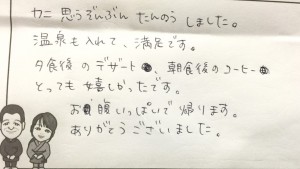 カニ 思うぞんぶん たんのう しました。
温泉も入れて、満足です。
夕食後のデザート、朝食後のコーヒー
とっても嬉しかったです。
お腹いっぱいで帰ります。
ありがとうございました。